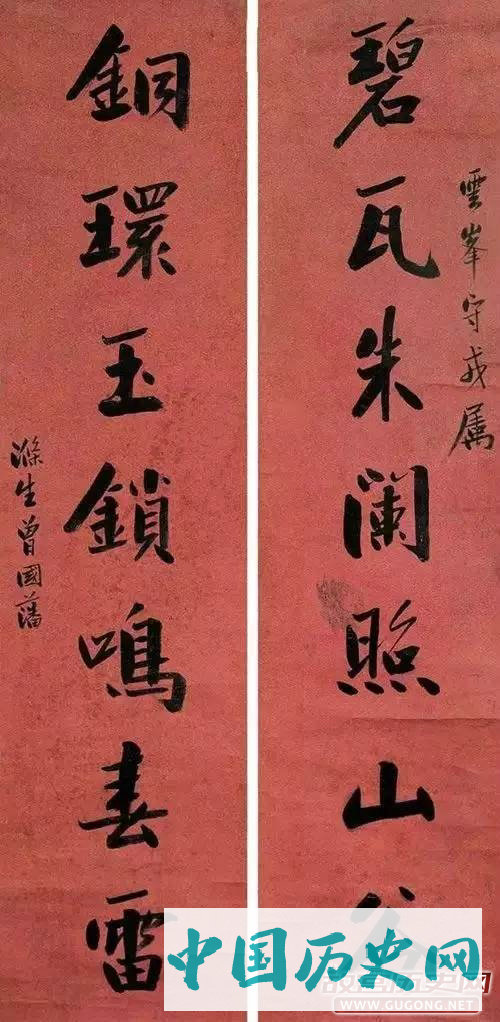 雲峯守戎屬
碧瓦朱闌照山
銅環玉鎖鳴春雷
滌生曾國藩
中国历史网
WWW.GUGONG.NET